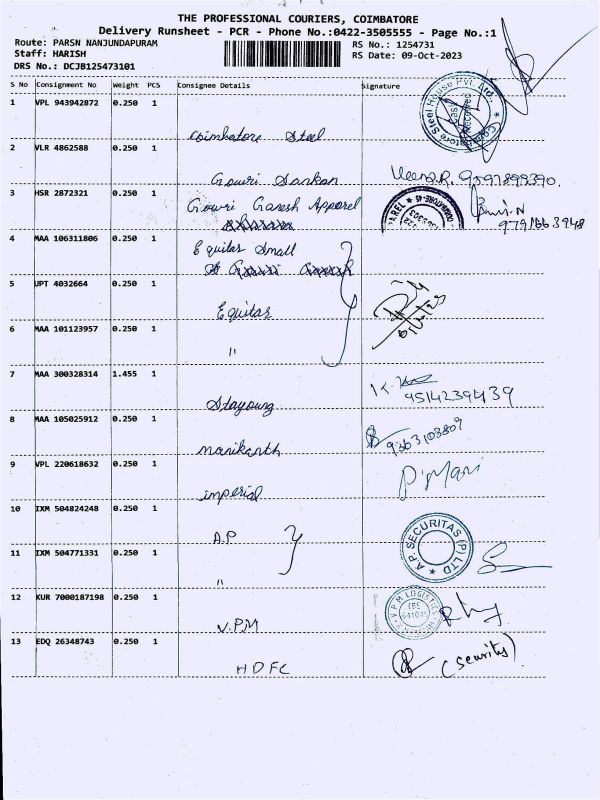 THE PROFESSIONAL COURIERS, COIMBATORE
Delivery Runsheet - PCR - Phone No.:0422-3505555 - Page No.:1
Route: PARSN NANJUNDAPURAM
Staff: HARISH
DRS No.: DCJB125473101
RS No.: 1254731
RS Date: 09-Oct-2023
S No Consignment No Weight PCS Consignee Details Signature
1 VPL 943942872 0.250 1
Coimbatore Steel
2 VLR 4862588 0.250 1
Gowri Sankar Veena.R. 9597899390.
3 HSR 2872321 0.250 1
Gowri Ganesh Apparel
9791663948
4 MAA 106311806 0.250 1
Equitas Small
5 UPT 4032664 0.250 1
Equitas
6 MAA 101123957 0.250 1
"
7 MAA 300328314 1.455 1
Stayoung
8 MAA 105025912 0.250 1
Manikanth 9363103809
9 VPL 220618632 0.250 1
imperial P. Mari
10 IXM 504824248 0.250 1
A.P
A.P. SECURITAS (P) LTD
11 IXM 504771331 0.250 1
"
12 KUR 7000187198 0.250 1
V.P.M
V P M LOGISTICS
13 EDQ 26348743 0.250 1
HDFC (Seurity)